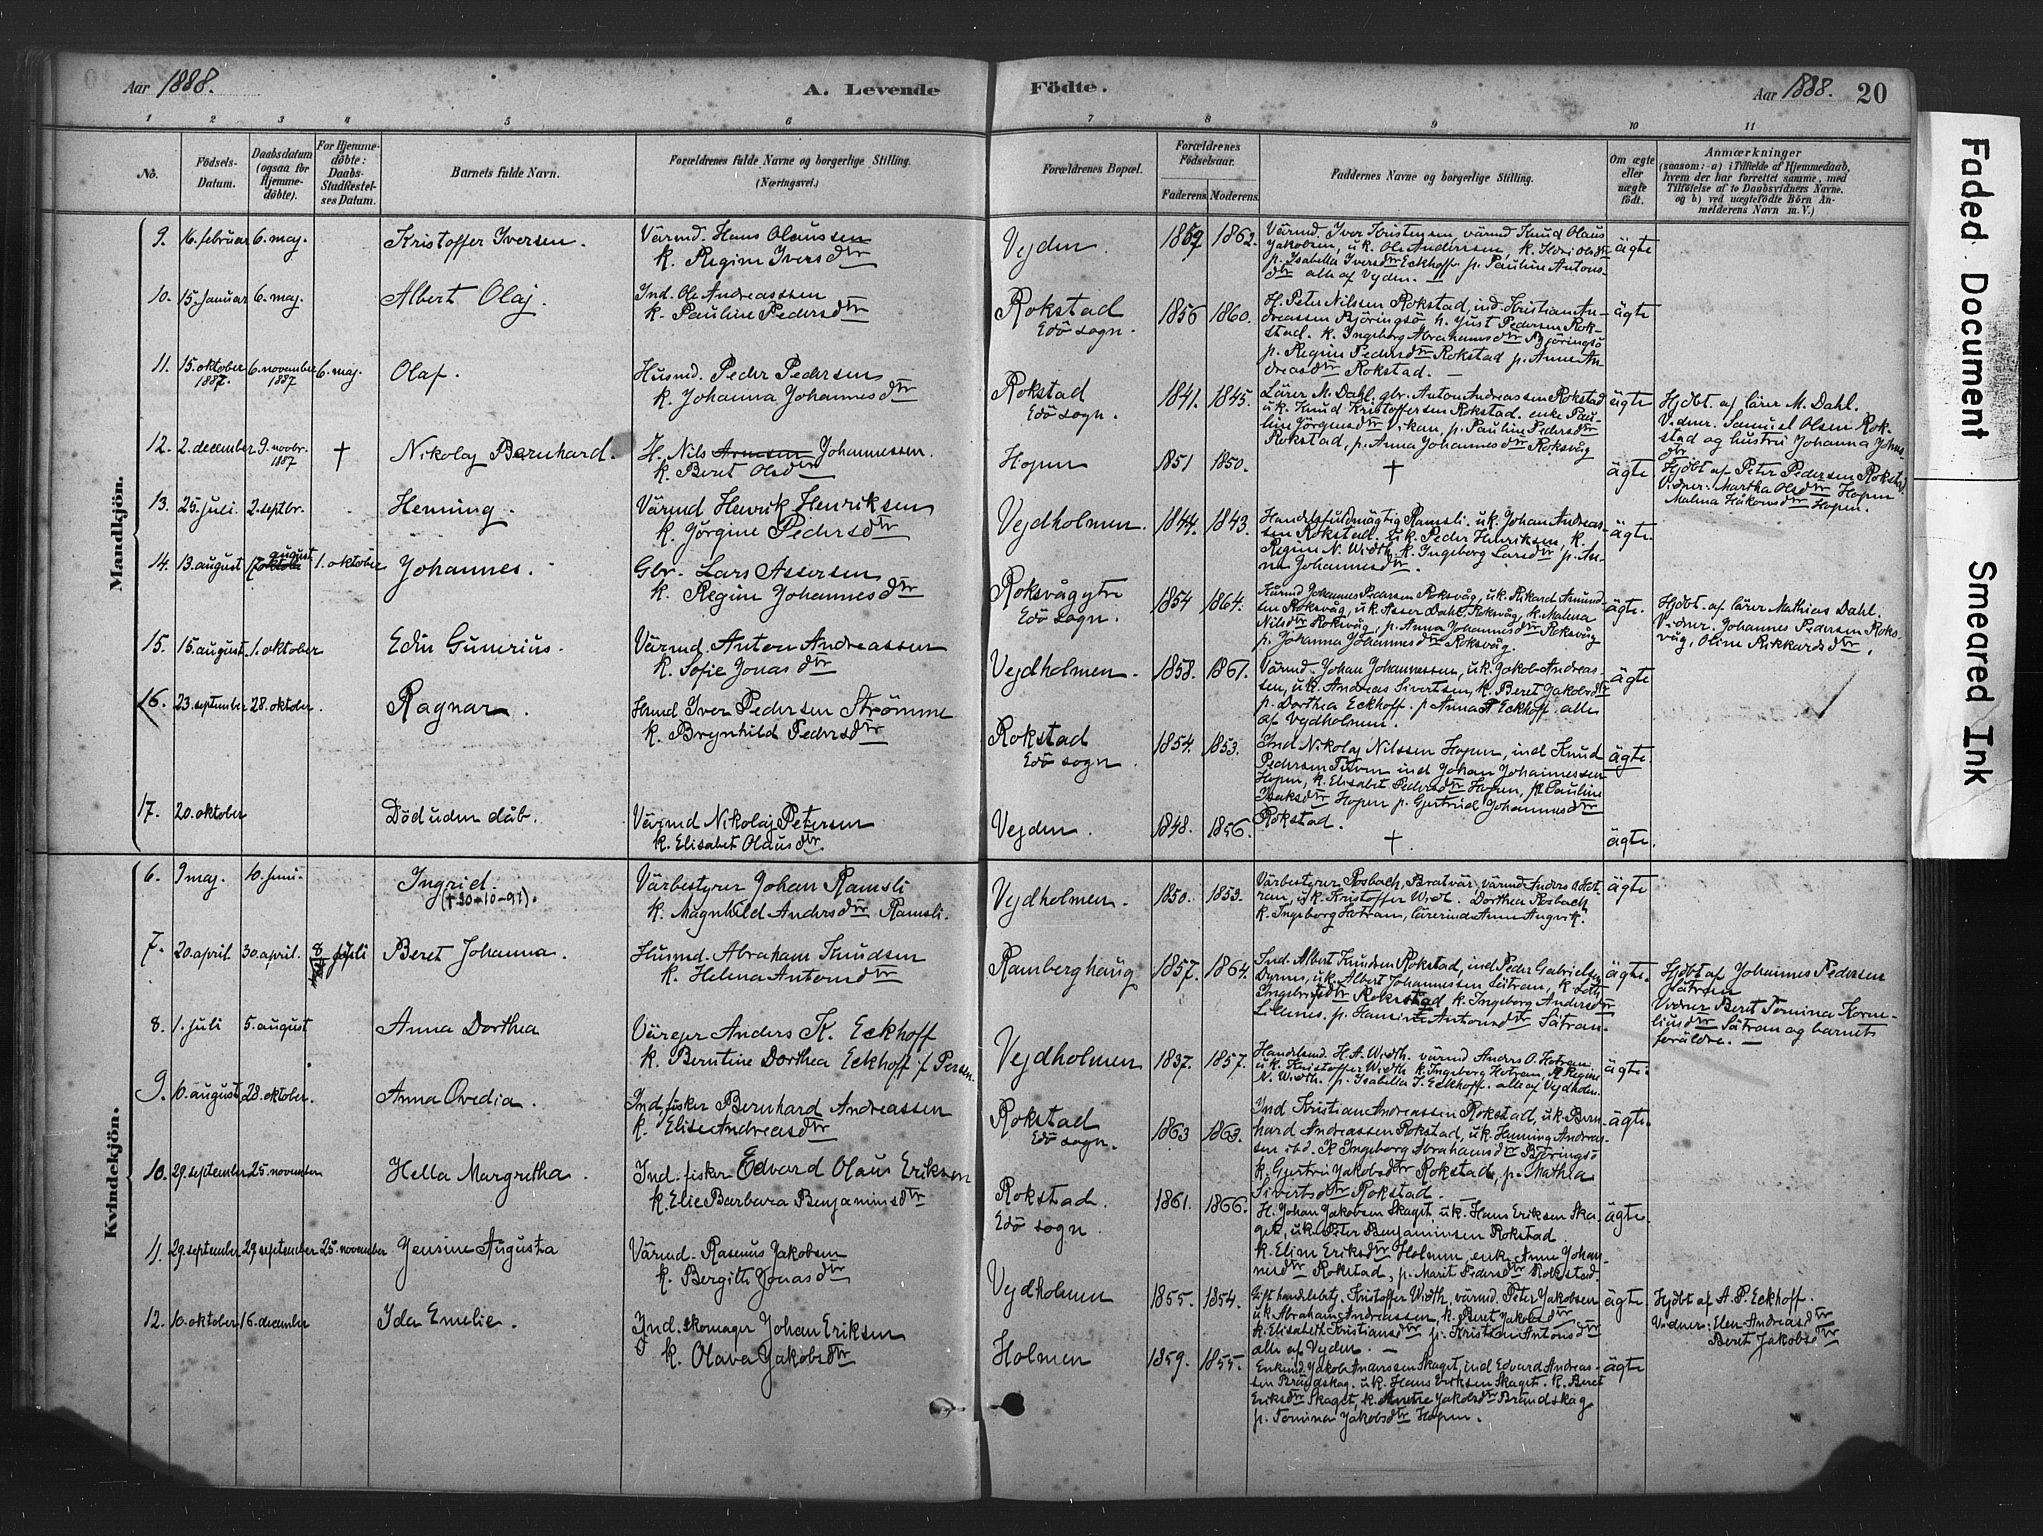 Aar 1888.
A. Levende
Födte.
Aar 1888.
20
1 2 3 4 5 6 7 8 9 10 11
No.
Födsels-
Datum.
Daabsdatum
(ogsaa for
Hjemme-
döbte).
For Hjemme-
döbte:
Daabs-
Stadfæstel-
ses Datum.
Barnets fulde Navn.
Forældrenes fulde Navne og borgerlige Stilling.
(Næringsvei.)
Forældrenes Bopæl.
Forældrenes
Födselsaar.
Faderens. Moderens.
Faddernes Navne og borgerlige Stilling.
Om ægte
eller
uægte
födt.
Anmærkninger
(saasom: a) i Tilfælde af Hjemmedaab,
hvem der har forrettet samme, med
Tilföielse af to Daabsvidners Navne,
og b) ved uægtefödte Börn An-
melderens Navn m. V.)
Mandkjön.
9. 16. februar 6. maj. Kristoffer Iversen. Värmd. Hans Olaussen
k. Regine Iversdtr
Vejden. 1859 1862.
Värmd. Iver Kristensen, värmd Knud Olaus
Jakobsen, u.k. Ole Andersen,
p. Isabella Iversdtr Eckhoff. p. Pauline Antons-
dtr alle af Vejden.
ägte
10. 15. januar 6. maj. Albert Olaj. Ind. Ole Andreassen
k. Pauline Pedersdtr
Rokstad
Edö sogn. 1856 1860.
H. Peter Nilssen Rokstad, ind. Kristian An-
dreassen Björingsö h. Just Pedersen Rok-
stad. k. Ingeborg Abrahamsdtr Björingsö
p. Regine Pedersdtr Rokstad p. Anne An-
dreasdtr Rokstad.
ägte
11. 15. oktober 6. november 6. maj. Olaf. Husmd. Peder Pedersen
1887. 1887 k. Johanna Johannesdtr
Rokstad
Edö sogn. 1841. 1845.
Lärer M. Dahl. gbr. Anton Andreassen Rokstad
u.k. Knud Kristoffersen Rokstad. enke Pau-
line Jörgensdtr Vikan, p. Pauline Pedersdtr
Rokstad, p. Anna Johannesdtr Roksvåg
ägte
Hjdbt. af lärer M. Dahl.
Vidner. Samuel Olsen Rok-
stad og hustru Johanna Johns
dtr
12. 2. december 9. novbr. † Nikolaj Bernhard. H. Nils Johannessen.
1887 k. Beret Olsdtr
Hopen 1851 1850. † ägte
Hjdbt af Peter Pedersen Rokstad.
Vidner. Martha Olsdtr Hopen
Malena Håkonsdtr Hopen.
13. 25. juli 2. septbr. Henning. Värmd Henrik Henriksen
k. Jörgine Pedersdtr
Vejdholmen. 1844. 1843.
Handelsfuldmägtig Ramsli. u.k. Johan Andreas-
sen Rokstad. u.k. Peder Henriksen, k.
Regine N. Width, k. Ingeborg Larsdtr p. An-
na Johannesdtr.
ägte.
14. 13. august 17 august 1. oktober Johannes. Gbr. Lars Assersen
k. Regine Johannesdtr
Roksvågytre
Edö sogn. 1854 1864.
Husmd Johannes Pedersen Roksvåg, u.k. Rikard Amund-
sen Roksvåg, u.k. Asser Dahl Roksvåg, k. Malena
Nilsdtr Roksvåg, p. Anna Johannesdtr Roksvåg
p. Johanna Johannesdtr Roksvåg.
ägte.
Hjdbt. af lärer Mathias Dahl.
Vidner. Johannes Pedersen Roks-
våg, Oline Rikkardsdtr.
15. 15. august 1. oktober Edin Gunerius. Värmd. Anton Andreassen
k. Sofie Jonasdtr
Vejdholmen. 1858. 1861.
Värmd. Johan Johannessen, u.k. Jakob Andreas-
sen, u.k. Andreas Sivertsen, k. Beret Jakobsdtr
p. Dorthea Eckhoff. p. Anna Eckhoff. alle
af Vejdholmen.
ägte
16. 23. september 28. oktober. Ragnar. Iver Pedersen Strømme
k. Brynhild Pedersdtr
Rokstad
Edö sogn. 1854. 1853.
Ind. Nikolaj Nilssen Hopen, ind. Knud
Pedersen ind Johan Johannessen
Hopen, k. Elisabet Pedersdtr Hopen, p. Pauline
Isaksdtr Hopen p. Gertrud Johannesdtr
Rokstad.
ägte.
17. 20. oktober Död uden dåb. Värmd Nikolaj Petersen
k. Elisabet Olausdtr.
Vejden. 1848. 1856. †. ägte.
Kvindekjön.
6. 9 maj. 10. juni. Ingrid. Värbestyrer Johan Ramsli
(†30-10-91). k. Magnhild Andersdtr Ramsli.
Vejdholmen. 1850. 1853.
Värbestyrer Rosbach, Bratvär, värmd Anders Hot-
ran, u.k. Kristoffer Widt. Dorthea Rosbach
k. Ingeborg Hotram, lärerinde Anne Angvik.
ägte
7. 20. april 30. april. 8 juli Beret Johanna. Husmd. Abraham Knudsen
k. Helena Antonsdtr
Ramberghaug 1857. 1864.
Ind. Albert Knudsen Rokstad, ind Peder Gabrielsen
Dyrnes, u.k. Albert Johannessen Sätran, k.
Ingebrigtsdtr Rokstad k. Ingeborg Andersdtr
p. Hansine Antonsdtr Sätran.
ägte.
Hjdbt af Johannes Pedersen
Sätran
Vidner Beret Tomina Korne-
liusdtr Sätran og barnets
foräldre.
8. 1. juli 5. august Anna Dorthea Värejer Anders K. Eckhoff
k. Berntine Dorthea Eckhoff f. Persen.
Vejdholmen 1837. 1857.
Handelsmd. H. A. Width. värmd Anders O. Hotran
u.k. Kristoffer Width k. Ingeborg Hotran, k. Regine
N. Width. p. Isabella I. Eckhoff. alle af Vejdholm.
ägte.
9. 6. august 28. oktober. Anna Ovedia. Ind. fisker Bernhard Andreassen
k. Elise Andreasdtr
Rokstad
Edö sogn. 1863 1863.
Ind Kristian Andreassen Rokstad, u.k. Bern-
hard Andreassen Rokstad, u.k. Henning Andreas-
sen ibd. k Ingeborg Abrahamsdtr Björingsö
k. Gjertru Jakobsdtr Rokstad, p. Mathea
Sivertsdtr Rokstad.
ägte.
10. 29. september 25. november Hella Margretha. Ind. fisker Edvard Olaus Eriksen
k. Elie Barbara Benjaminsdtr
Rokstad.
Edö sogn. 1861. 1866.
H. Johan Jakobsen Skaget u.k. Hans Eriksen Ska-
get, u.k. Peter Benjaminsen Rokstad.
k. Elina Eriksdtr Holmen, enke Anne Johan-
nesdtr Rokstad, p. Marit Pedersdtr Rokstad.
ägte.
11. 29. september 29. september 25. november Jensine Augusta Värmd. Rasmus Jakobsen
k. Bergitte Jonasdtr
Vejdholmen 1855. 1854.
Gift handelsbetj. Kristoffer Width, värmd. Peter Jakobsen
u.k. Abraham Andreassen, k. Beret Jakobsdtr
k. Elisabeth Kristiansdtr p. Antonsdtr
alle af Vejden.
ägte
Hjdbt af A. P. Eckhoff.
Vidner: Elen Andreasdtr
Beret Jakobsdtr
12. 10. oktober 16. december Ida Emelie. Ind. skomager Johan Eriksen
k. Olava Jakobsdtr
Holmen 1859. 1855.
Enkemd. Jakob Anderssen Skaget, ind Edvard Andreas-
sen Brändskag. u.k. Hans Eriksen Skaget. k. Beret
Eriksdtr Skaget, k. Jakobsdtr Brändskag
p. Tomina Jakobsdtr Hopen.
ägte
Faded Document
Smeared Ink